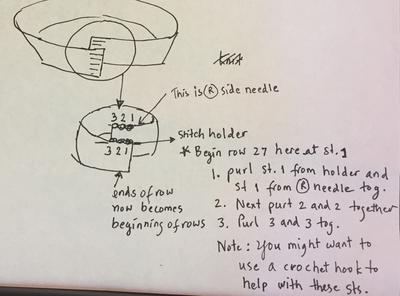 This is Ⓡ side needle
3 2 1
stitch holder
3 2 1
* Begin row 27 here at st. 1
1. purl st. 1 from holder and
st 1 from Ⓡ needle tog.
ends of row
now becomes
beginning of rows
2. Next purt 2 and 2 together
3. Purl 3 and 3 tog.
Note: You might want to
use a crochet hook to
help with these sts.